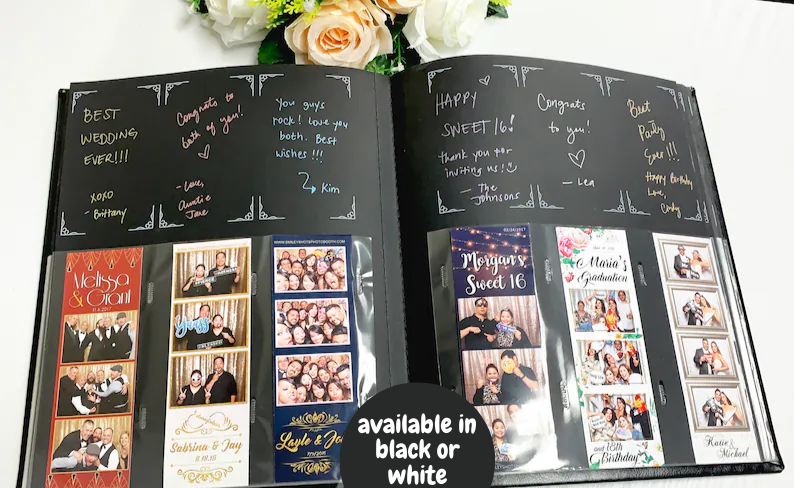 BEST
WEDDING
EVER!!!
XOXO
- Brittany
Congrats to
both of you!
- Love,
Auntie
Jane
You guys
rock! Love you
both. Best
wishes !!!
Kim
HAPPY
SWEET 16!
thank you for
inviting us!
- The
Johnsons
Congrats
to you!
- Lea
Best
Party
Ever!!!
Happy Birthday
Love,
Cindy
Melissa
& Grant
Sabrina & Jay
8.18.16
WWW.SMILEYSHOTSPHOTOBOOTH.COM
Layle &
Morgan's
Sweet 16
Maria's
Graduation
and 18th
Birthday
Katie &
Michael
available in
black or
white